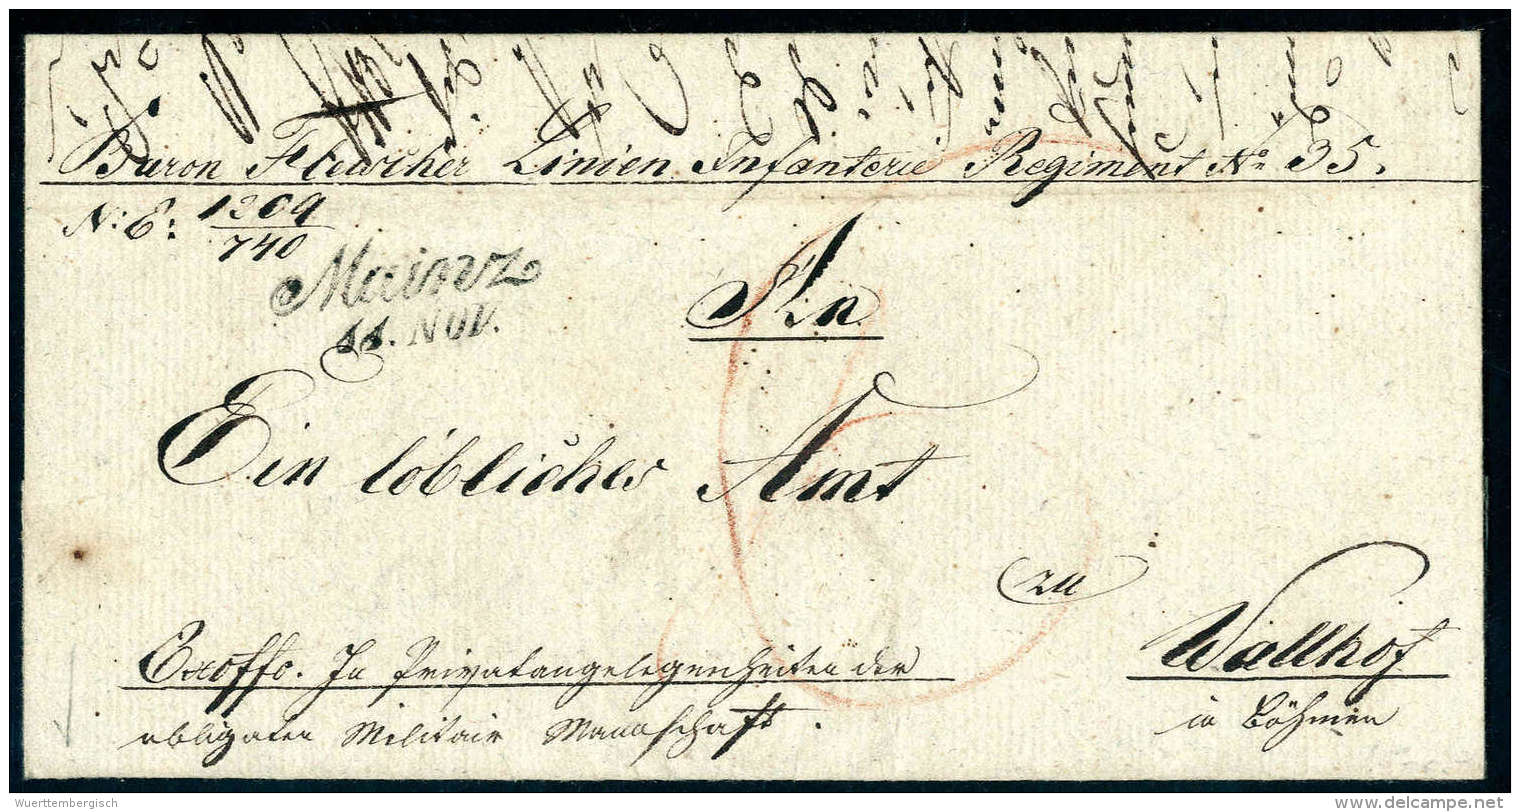 Baron Fleischer Linien Infanterie Regiment No 35.
N: E: 1209
740
Mainz
11. NOV.
An
Ein löbliches Amt
zu
Wallhof
in Böhmen
Exoffo. In Privatangelegenheiten der
obligaten Militair Mannschaft.
Wuerttembergisch
delcampe.net